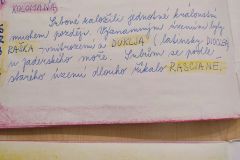 Srbové založili jednotné království
mnohem později. Významnými územími byly
RAŠKA - vnitrozemí a DUKLJA (latinsky DIOCLEA)
u jaderského moře. Srbům se podle
starého území dlouho říkalo RASCIANE.